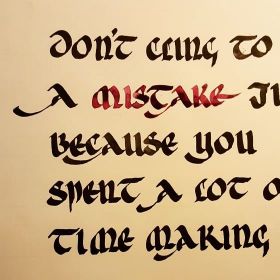 DON'T CLING TO
A MISTAKE JU
BECAUSE YOU
SPENT A LOT O
TIME MAKING